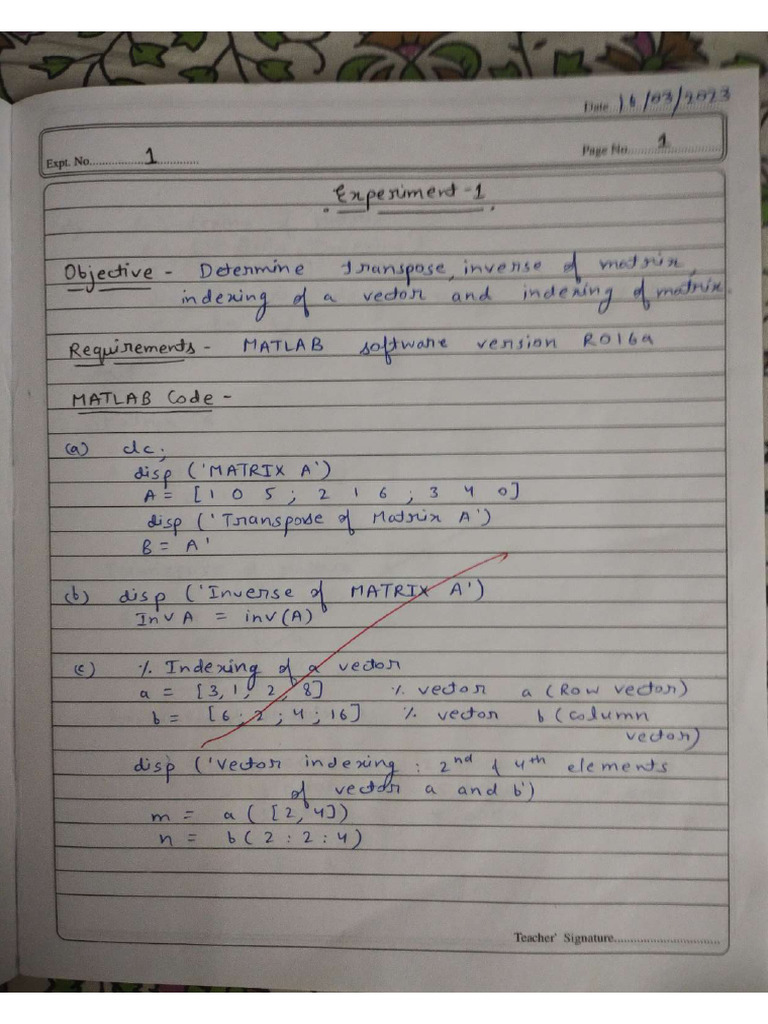 Date 16/03/2023
Expt. No. 1
Page No. 1
Experiment-1
Objective - Determine transpose, inverse of matrix,
indexing of a vector and indexing of matrix.
Requirements - MATLAB software version R016a
MATLAB Code -
(a) clc;
disp ('MATRIX A')
A = [1 0 5 ; 2 1 6 ; 3 4 0]
disp ('Transpose of Matrix A')
B = A'
(b) disp ('Inverse of MATRIX A')
Inv A = inv(A)
(c) % Indexing of a vector
a = [3, 1, 2, 8] % vector a (Row vector)
b = [6 ; 2 ; 4 ; 16] % vector b (column
vector)
disp ('Vector indexing : 2nd & 4th elements
of vector a and b')
m = a ( [2, 4])
n = b( 2 : 2 : 4)
Teacher' Signature